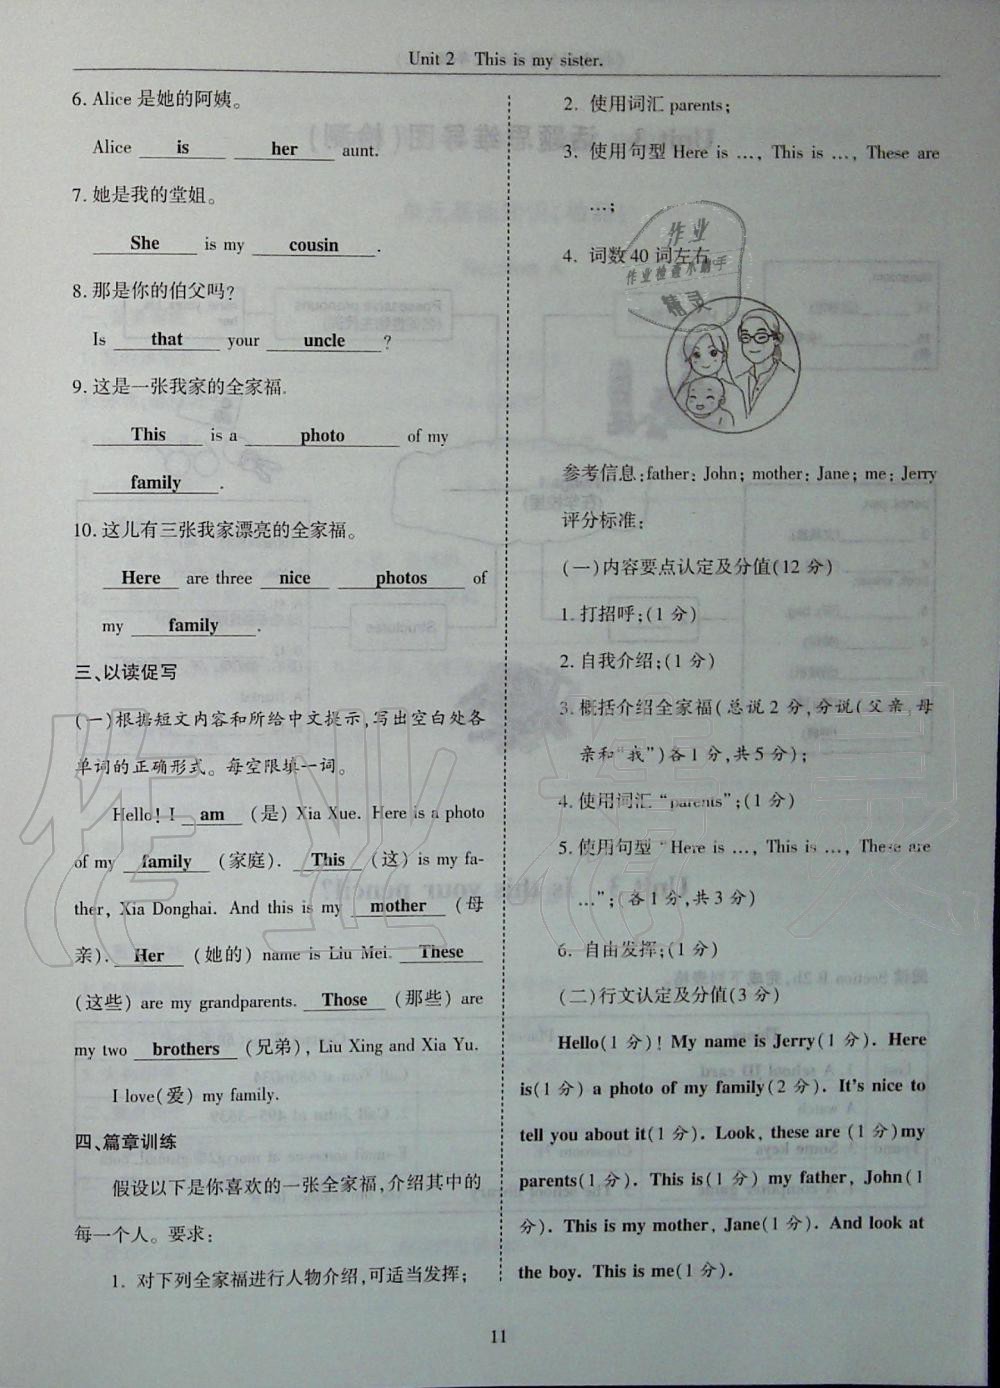 Unit 2 This is my sister.
6. Alice 是她的阿姨。
Alice is her aunt.
7. 她是我的堂姐。
She is my cousin.
8. 那是你的伯父吗?
Is that your uncle?
9. 这是一张我家的全家福.
This is a photo of my
family.
10. 这儿有三张我家漂亮的全家福。
Here are three nice photos of
my family.
三、以读促写
(一)根据短文内容和所给中文提示,写出空白处各
单词的正确形式。每空限填一词。
Hello! I am (是) Xia Xue. Here is a photo
of my family (家庭). This (这) is my fa-
ther, Xia Donghai. And this is my mother (母
亲). Her (她的) name is Liu Mei. These
(这些) are my grandparents. Those (那些) are
my two brothers (兄弟), Liu Xing and Xia Yu.
I love(爱) my family.
四、篇章训练
假设以下是你喜欢的一张全家福,介绍其中的
每一个人。要求:
1. 对下列全家福进行人物介绍,可适当发挥;
2. 使用词汇 parents;
3. 使用句型 Here is …, This is …, These are
…;
4. 词数 40 词左右
作业
作业检查小助手
精灵
参考信息:father: John; mother: Jane; me: Jerry
评分标准:
(一)内容要点认定及分值(12 分)
1. 打招呼;(1 分)
2. 自我介绍;(1 分)
3. 概括介绍全家福(总说 2 分,分说(父亲、母
亲和“我”)各 1 分,共 5 分);
4. 使用词汇 “parents”;(1 分)
5. 使用句型 “Here is …, This is …, These are
…”;(各 1 分,共 3 分)
6. 自由发挥;(1 分)
(二)行文认定及分值(3 分)
Hello(1 分)! My name is Jerry(1 分). Here
is(1 分) a photo of my family(2 分). It's nice to
tell you about it(1 分). Look, these are (1 分)my
parents(1 分). This is(1 分) my father, John(1
分). This is my mother, Jane(1 分). And look at
the boy. This is me(1 分).
作业精灵
11